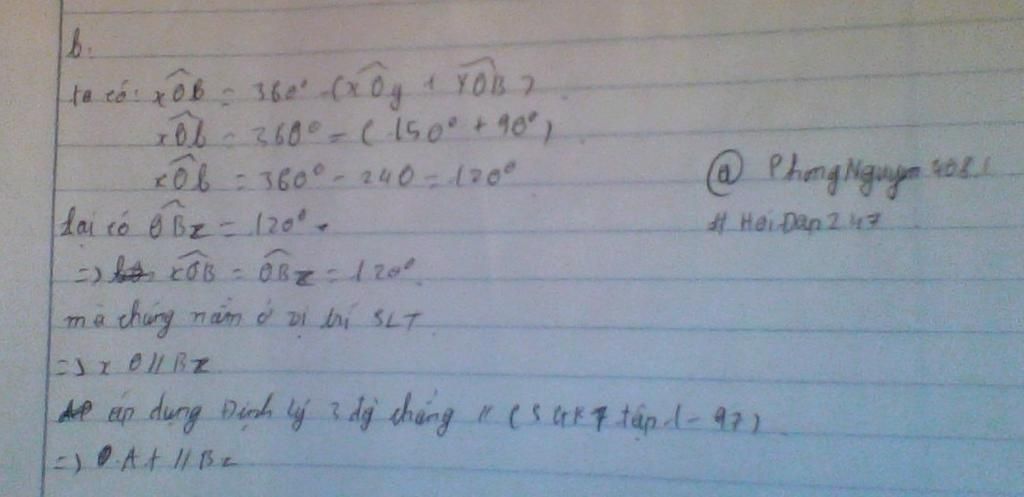 b.
ta có: xOB = 360° - (xOy + YOB)
xOb = 360° = (150° + 90°)
xOb = 360° - 240 = 120°
@ PhongNguyen
lại có OBz = 120°.
# HoiDap247
=> xOB = OBz = 120°.
mà chúng nằm ở vị trí SLT
=> xO // Bz
áp dụng Định lý 3 đg thẳng // (SGK 7 tập 1 - 97)
=> At // Bz